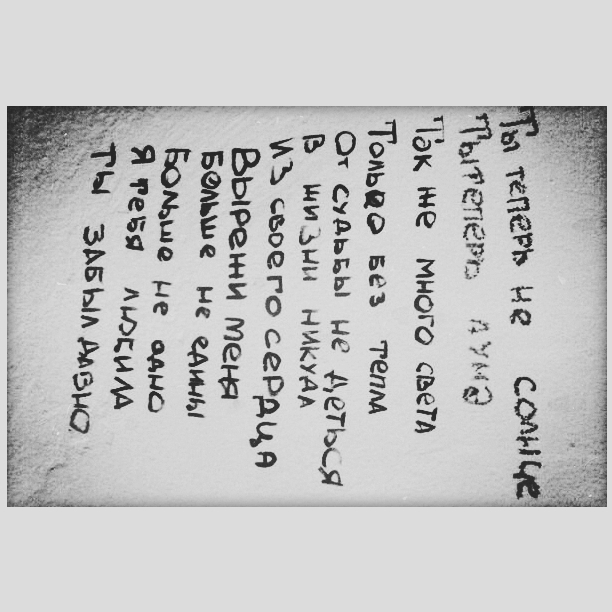 Ты теперь не солнце
Ты теперь луна
Так же много света
Только без тепла
От судьбы не деться
В жизни никуда
Из своего сердца
Вырежи меня
Больше не едины
Больше не одно
Я тебя любила
Ты забыл давно